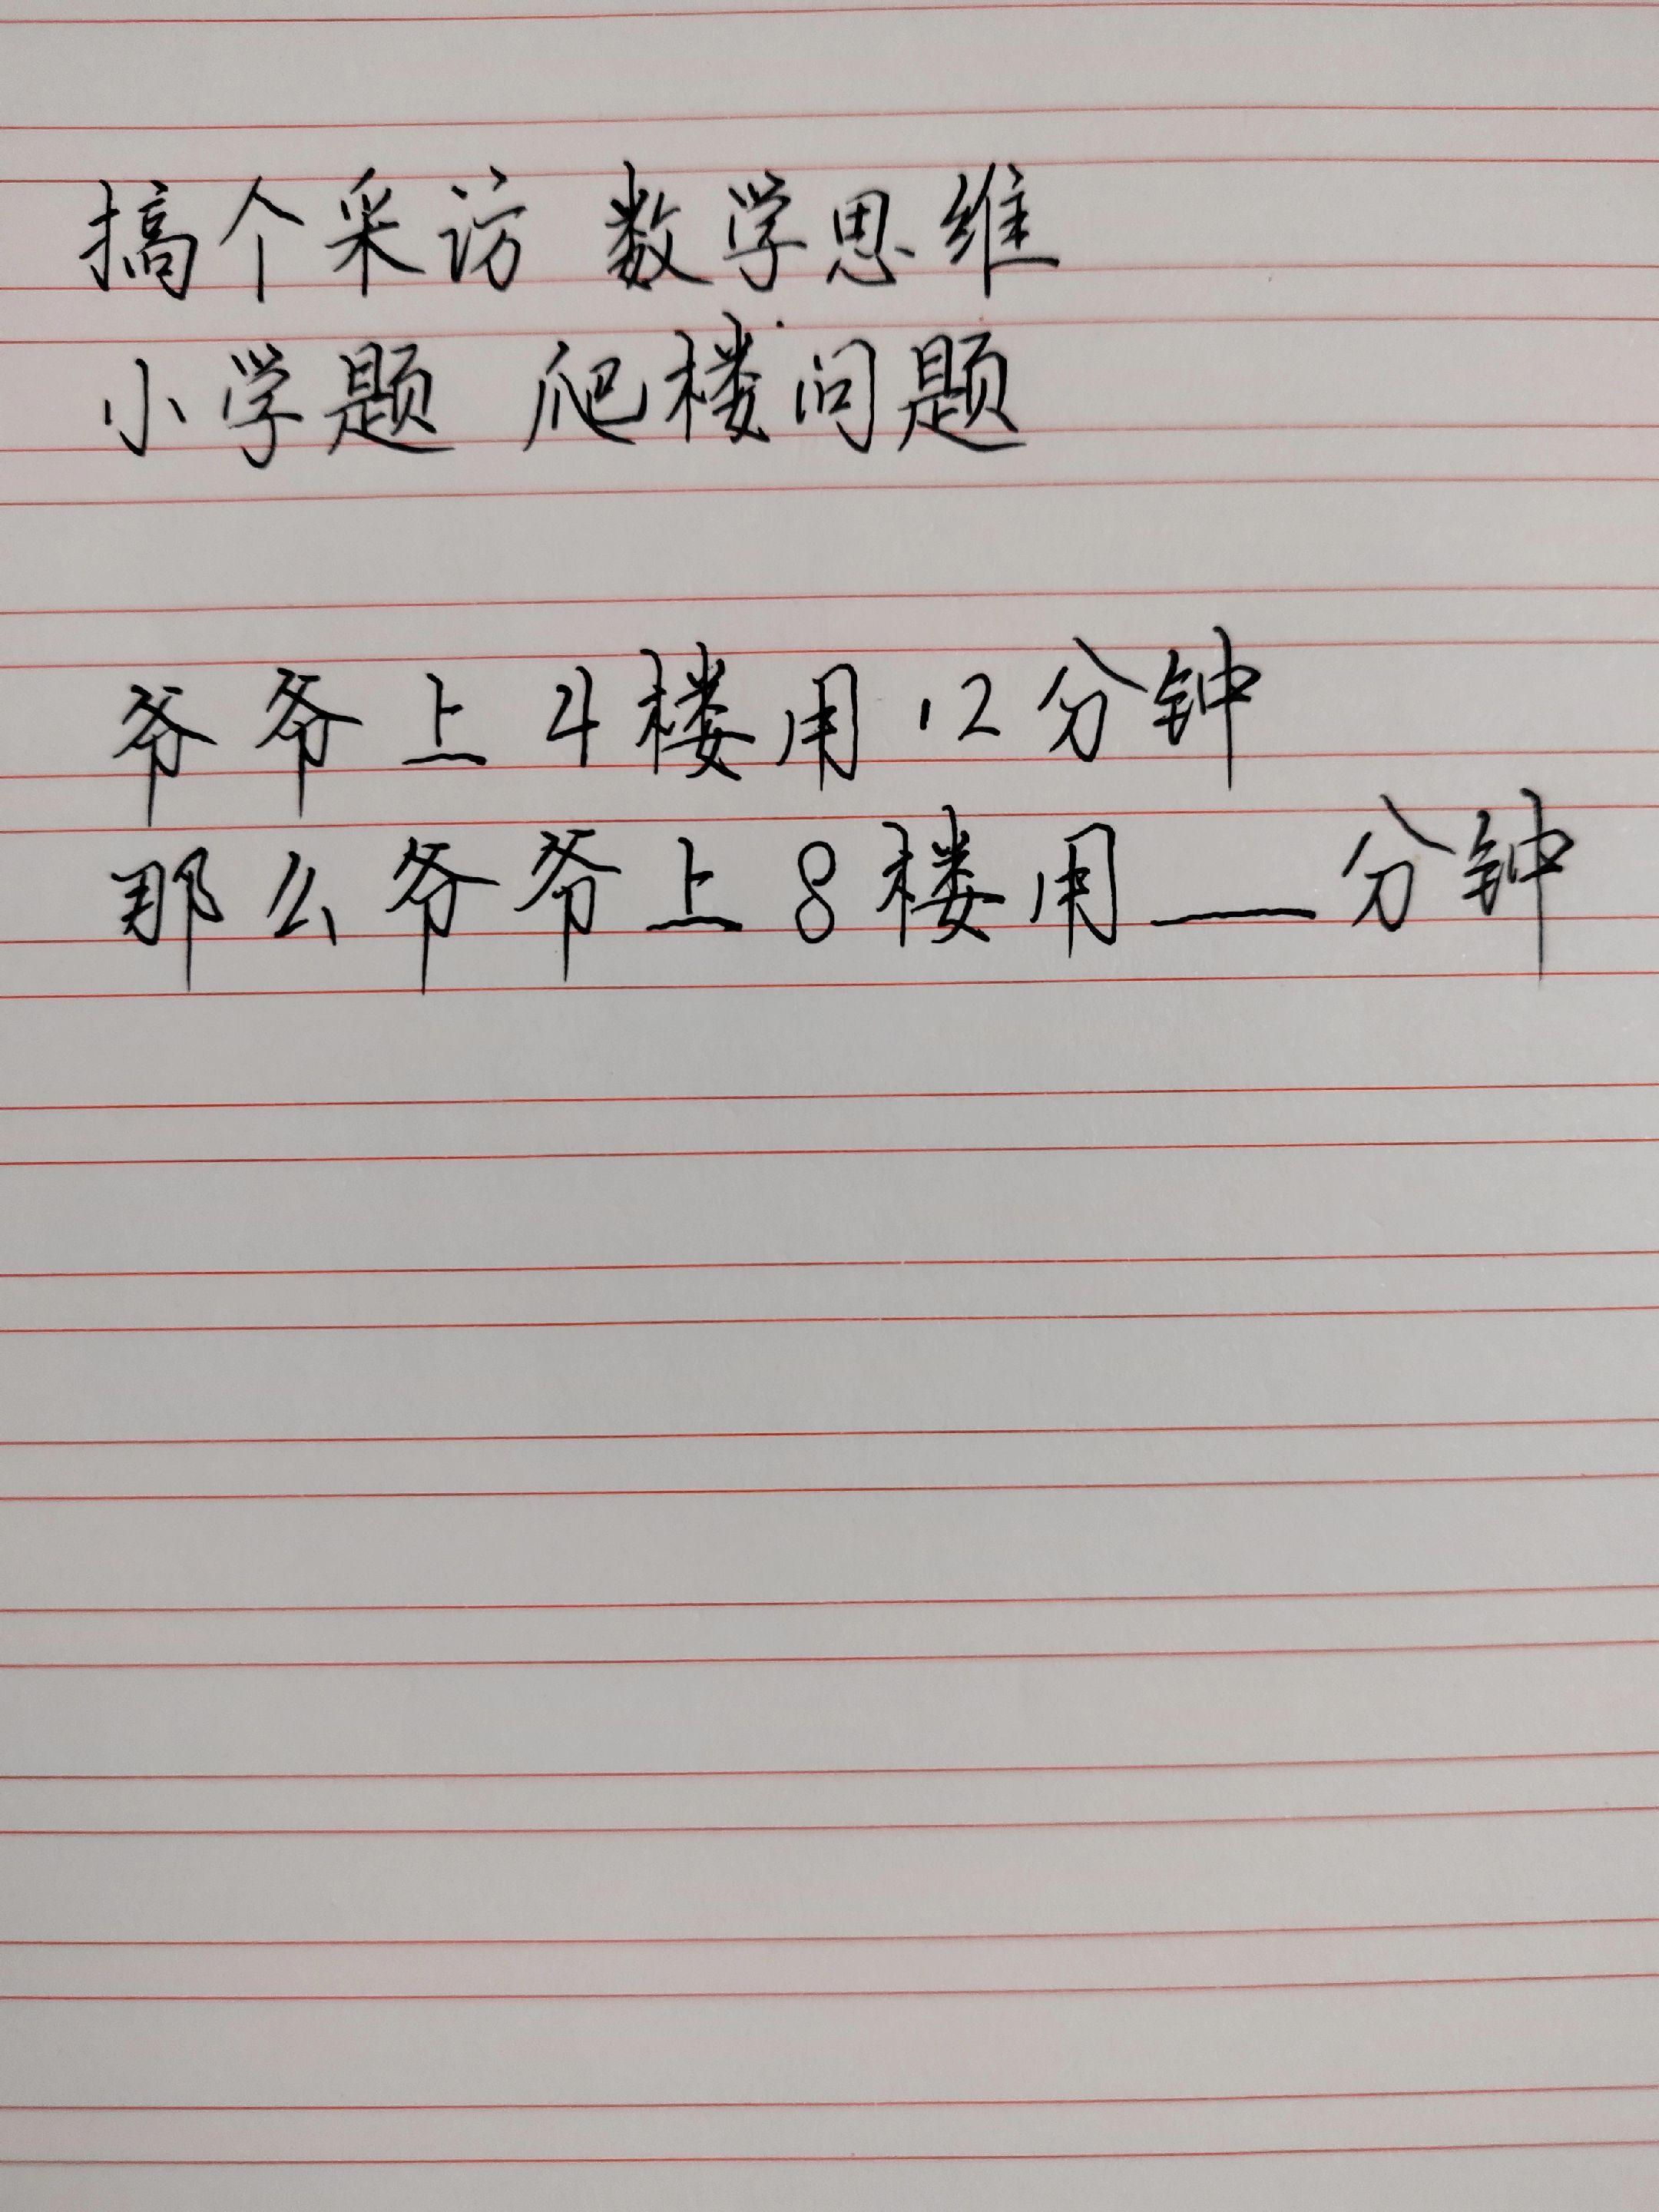 搞个采访 数学思维
小学题 爬楼问题
爷爷上4楼用12分钟
那么爷爷上8楼用___分钟